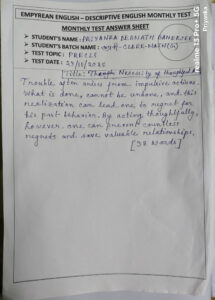 EMPYREAN ENGLISH – DESCRIPTIVE ENGLISH MONTHLY TEST
MONTHLY TEST ANSWER SHEET
➤ STUDENT'S NAME : PRIYANKA DEBNATH BANERJEE
➤ STUDENT'S BATCH NAME : CLERK-MATH(G)
➤ TEST TOPIC : PRECIS
➤ TEST DATE :
Title: Necessity of
Trouble often arises from impulsive actions.
What is done, cannot be undone, and this
realization can lead one to regret for
his past behavior. By acting thoughtfully,
however, one can prevent countless
regrets and save valuable relationships.
[58 Words]
realme 13 Pro+ 5G
Priyanka